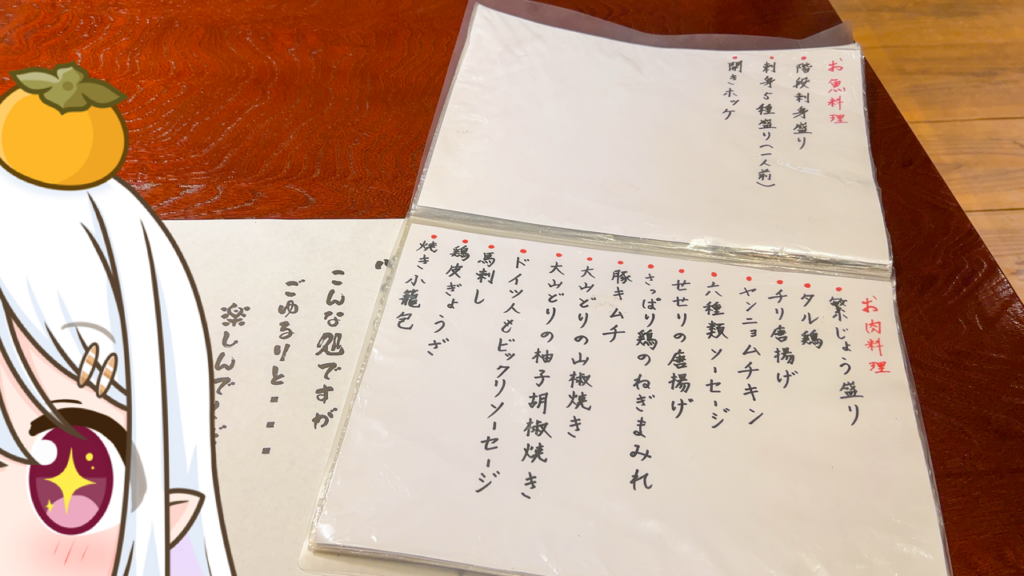 お魚料理
階段刺身盛り
刺身5種盛り(一人前)
開きホッケ
お肉料理
繁じょう盛り
タル鶏
チリ唐揚げ
ヤンニョムチキン
六種類ソーセージ
せせりの唐揚げ
さっぱり鶏のねぎまみれ
豚キムチ
大山どりの山椒焼き
大山どりの柚子胡椒焼き
ドイツ人もビックリソーセージ
馬刺し
鶏皮ぎょうざ
焼き小籠包
こんな処ですが
ごゆるりと・・・・
楽しんで